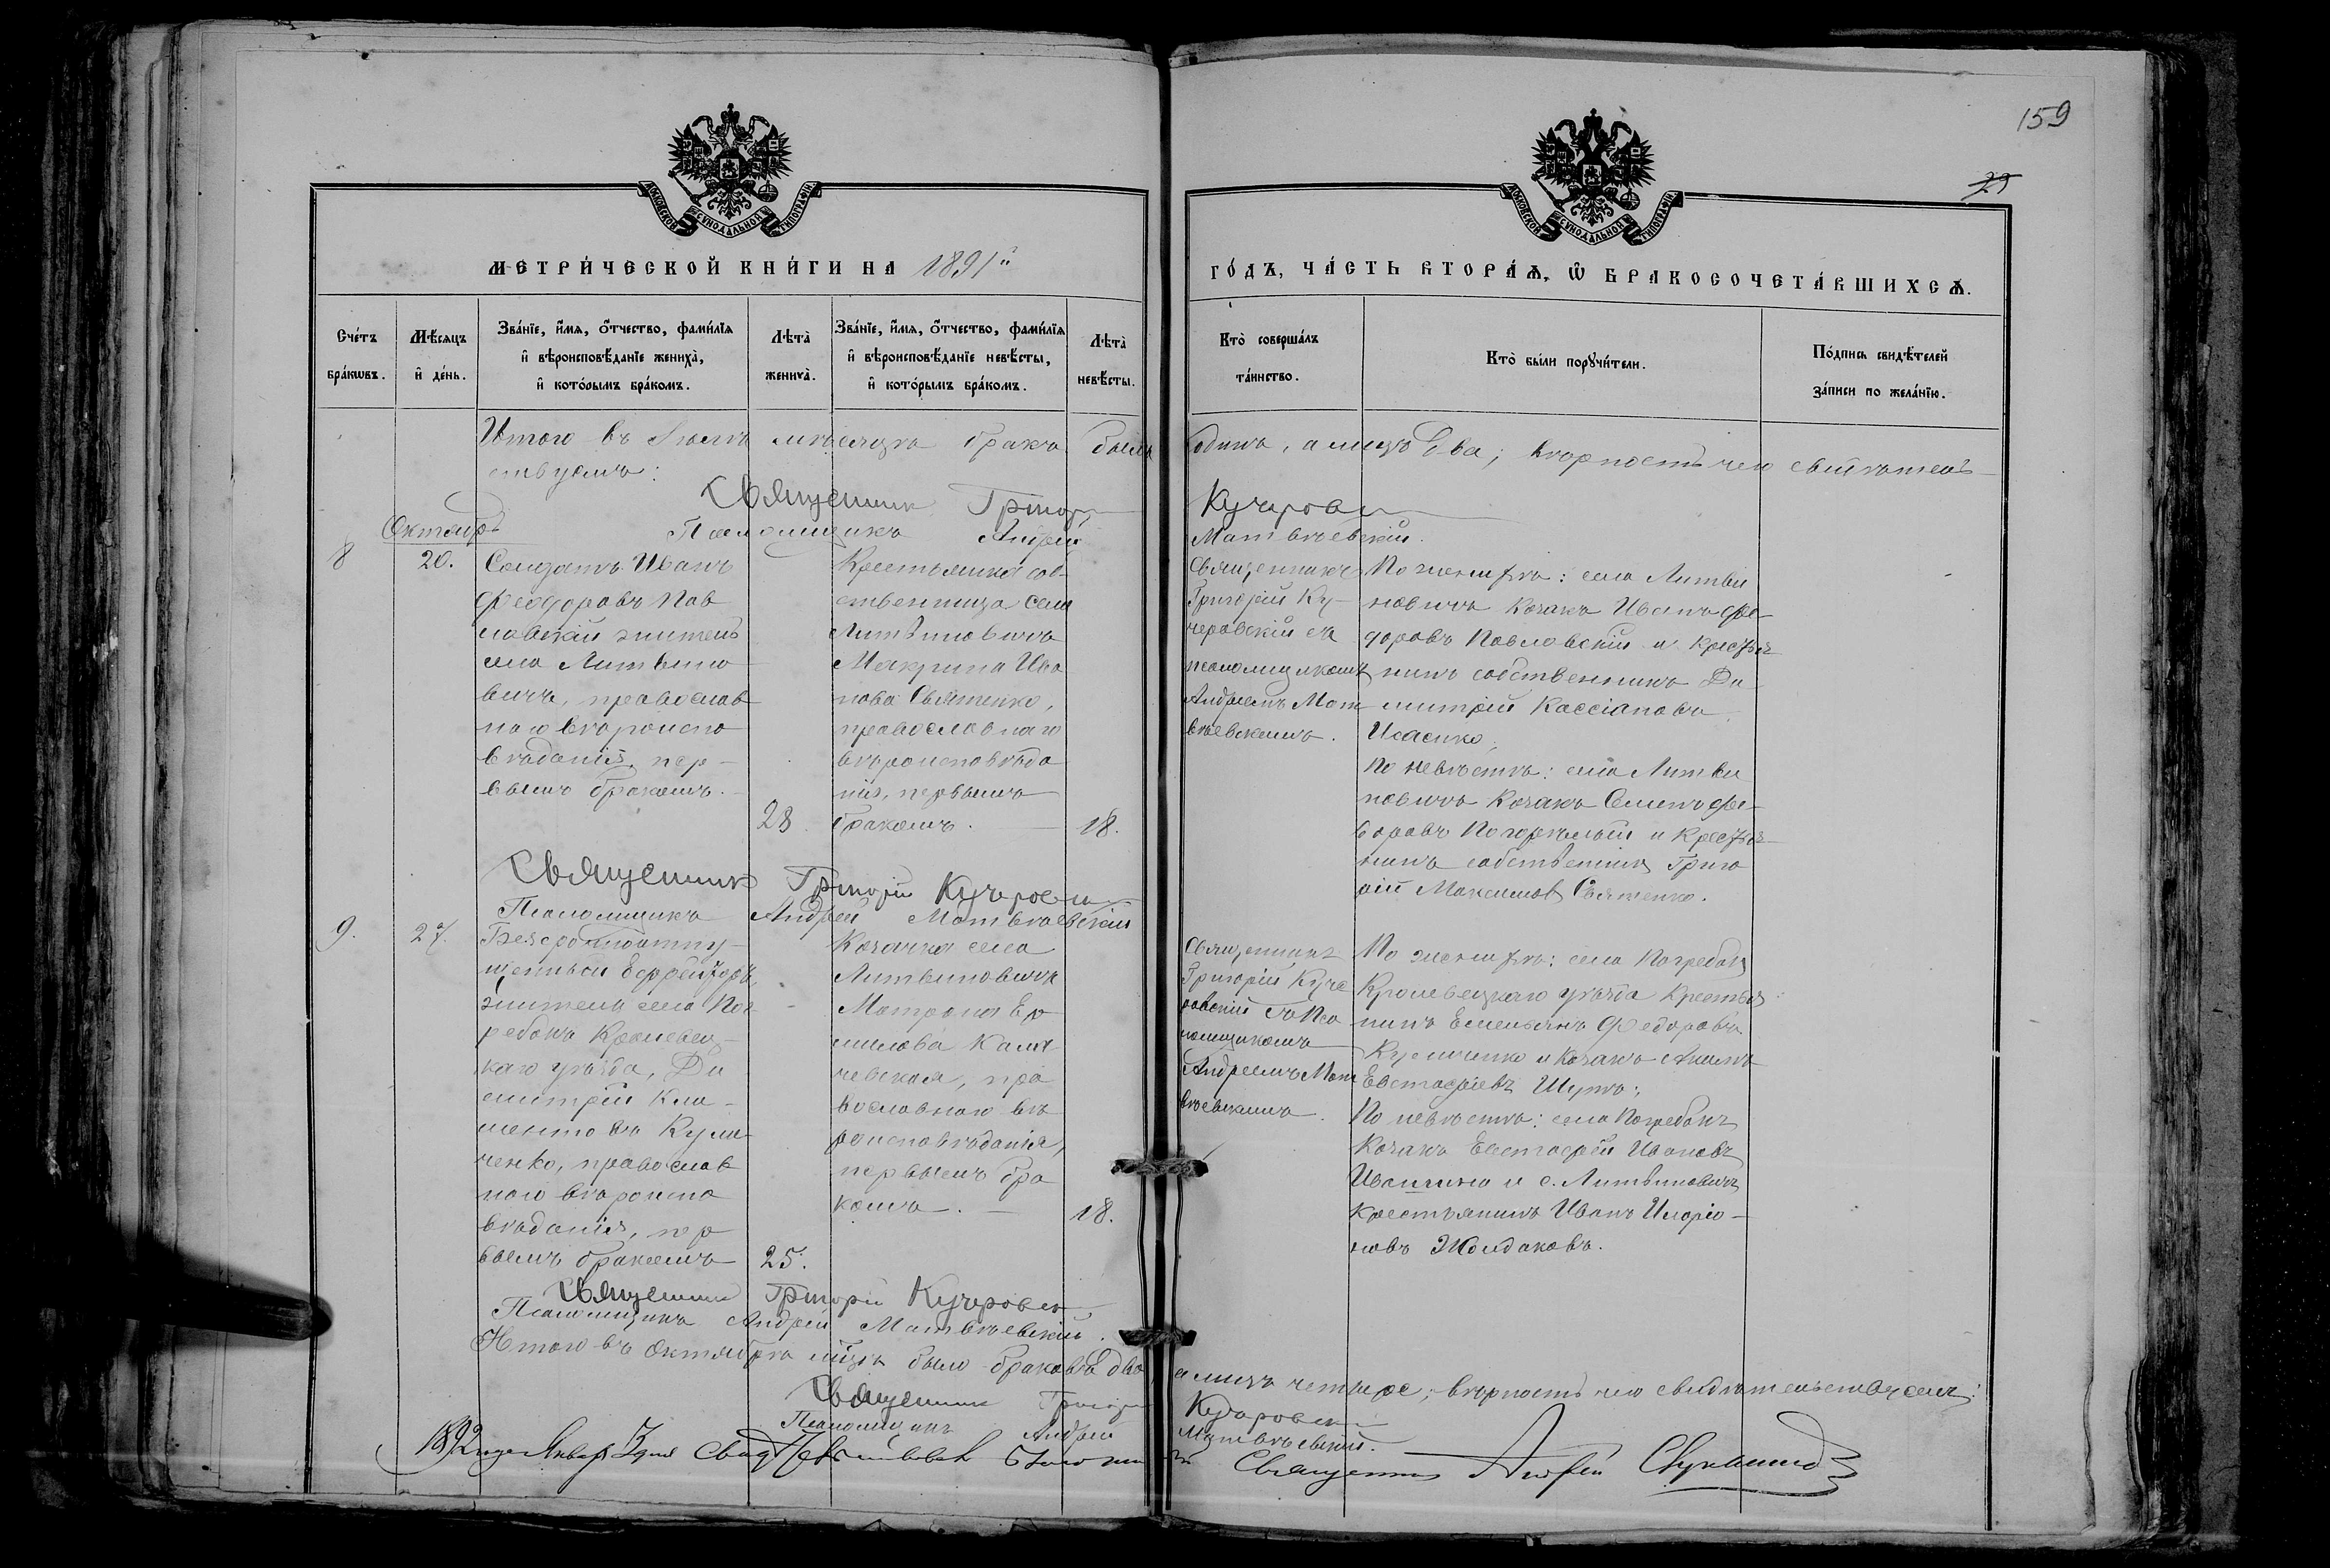 159
29
МОСКОВСКОЙ СѴНОДАЛЬНОЙ ТИПОГРАФІИ
МОСКОВСКОЙ СѴНОДАЛЬНОЙ ТИПОГРАФІИ
МЕТРИ́ЧЕСКОЙ КНИ́ГИ НА 1891й
ГО́ДЪ, ЧА́СТЬ ВТОРА́Ѧ, Ѡ҆ БРАКОСОЧЕТА́ВШИХСѦ.
Сче́тъ
бра́кѡвъ.
Мѣ́сѧцъ
и҆ де́нь.
Зва́нїе, и҆́мѧ, ѻ҆́тчество, фами́лїѧ
и҆ вѣроисповѣ́данїе жениха̀,
и҆ кото́рымъ бра́комъ.
Лѣта̀
жениха̀.
Зва́нїе, и҆́мѧ, ѻ҆́тчество, фами́лїѧ
и҆ вѣроисповѣ́данїе невѣ́сты,
и҆ кото́рымъ бра́комъ.
Лѣта̀
невѣ́сты.
Кто̀ соверша́лъ
та́инство.
Кто̀ бы́ли порꙋчи́тели.
По́дпись свидѣ́телей
за́писи по жела́нїю.
Итого въ мѣсяцѣ бракъ былъ одинъ, а лицъ два; вѣрность чего свидѣтель
ствуемъ:
Священник Григорій Кучеровскій
Псаломщикъ Андрей Матвѣевскій.
Октябрь
8
20.
Солдатъ Иванъ
Феодоровъ Пав
ловскій житель
села Литвино
вичъ, православ
наго вѣроиспо
вѣданія, пер-
вымъ бракомъ.
28
Крестьянка соб-
ственница села
Литвиновичъ
Макрина Ива
нова Святенко,
православнаго
вѣроисповѣда
нія, первымъ
бракомъ.
18.
Священникъ
Григорій Ку-
черовскій съ
псаломщикомъ
Андреемъ Мат
вѣевскимъ.
По женихѣ: села Литви
новичъ Козакъ Иванъ Фео-
доровъ Павловскій и крестья
нинъ собственникъ Ди
митрій Кассіановъ
Исаенко;
По невѣстѣ: села Литви
новичъ Козакъ Семенъ Фео-
доровъ Погорѣлый и Крестья
нинъ собственникъ Григо
рій Максимовъ Святенко.
Священник Григорій Кучеровскій
Псаломщикъ Андрей Матвѣевскій
9.
27.
щенный Ефрейторъ,
житель села Пог
ребокъ Кролевец-
каго уѣзда, Ди
митрій Кли-
ментовъ
ченко, православ
наго вѣроиспо
вѣданія, пер
вымъ бракомъ
25.
Козачка села
Литвиновичъ
Матрона Ер
милова
чевская, пра
вославнаго вѣ
роисповѣданія,
первымъ бра
комъ.
18.
Священникъ
Григорій Куче
ровскій съ Пса
ломщикомъ
Андреемъ Мат
вѣевскимъ.
По женихѣ: села Погребокъ
Кролевецкаго уѣзда Крестья
нинъ Емельянъ Федоровъ
и Козакъ
Евстафіевъ
По невѣстѣ: села Погребокъ
Козакъ Евстафій Ивановъ
и с. Литвиновичъ
крестьянинъ Иванъ Иларіо-
новъ Жолдаковъ.
Священник Григорій Кучеровскій
Псаломщикъ Андрей Матвѣевскій.
Итого въ Октябрѣ мѣсяцѣ было браковъ два, а лицъ четыре; вѣрность чего свидѣтельствуемъ:
Священник Григорій Кучеровскій
Псаломщикъ Андрей Матвѣевскій.
1892 года Января Священник Андрей